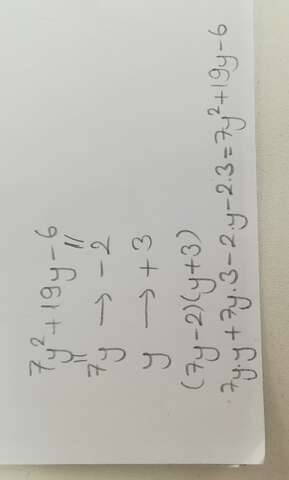 7y²+19y-6
" "
7y → -2
y → +3
(7y-2)(y+3)
7y·y+7y·3-2·y-2·3=7y²+19y-6